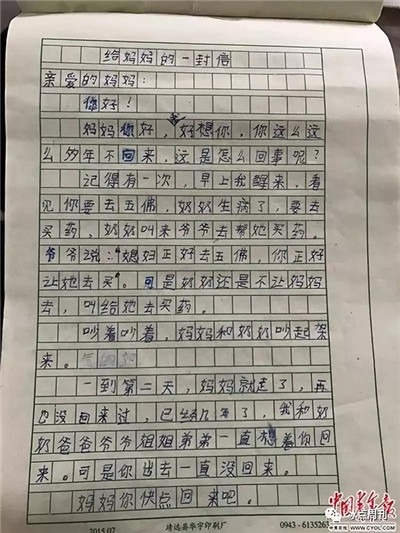 给妈妈的一封信
亲爱的妈妈：
你好！
妈妈你好，我好想你，你这么这
么多年不回来，这是怎么回事呢？
记得有一次，早上我醒来，看
见你要去五佛，奶奶生病了，要去
买药，奶奶叫来爷爷去帮她买药。
爷爷说："媳妇正好去五佛，你正好
让她去买"。可是奶奶还是不让妈妈
去，叫给她去买药。
吵着吵着，妈妈和奶奶吵起架
来。
一到第二天，妈妈就走了，再
也没回来过，已经几年了，我和奶
奶爸爸爷爷姐姐弟弟一直想着你回
来。可是你出去一直没回来。
妈妈你快点回来吧。
2015.07 靖远县华宇印刷厂 0943-6135265
中国青年报
中青在线 CYOL.COM